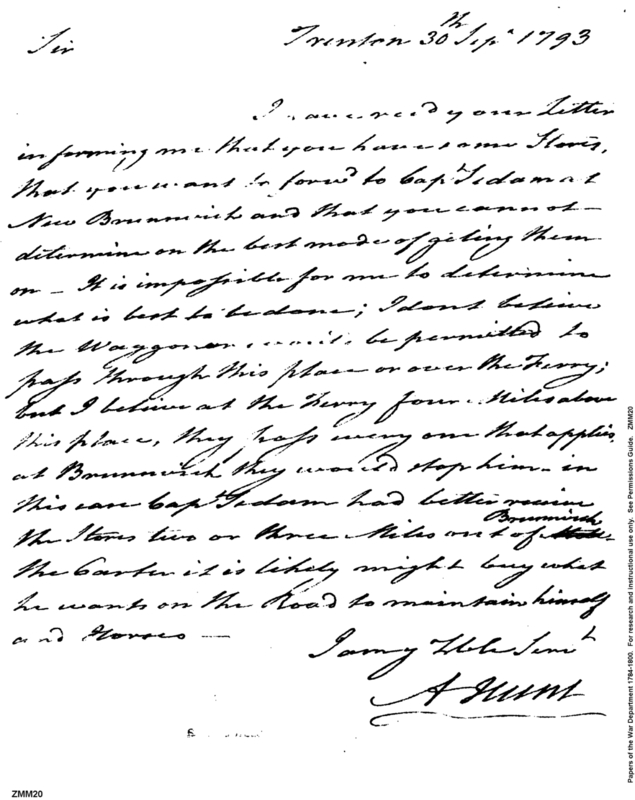 Sir Trenton 30th Sepr 1793
I have recd your Letter
informing me that you have some Stores,
that you want to forwd to Capt Sedam at
New Brunswick and that you cannot
determine on the best mode of geting them
on — It is impossible for me to determine
what is best to be done; I dont believe
the Waggoner would be permitted to
pass through this place or over the Ferry;
but I believe at the Ferry four Miles above
this place, they pass every one that applies
at Brunswick they would stop him — in
this case Capt Sedam had better receive
the Stores two or three Miles out of Brunswick
the Carter it is likely might buy what
he wants on the Road to maintain himself
and Horses —
I am yr Hble Servt
A Hunt
ZMM20
Papers of the War Department 1784-1800. For research and instructional use only. See Permissions Guide. ZMM20